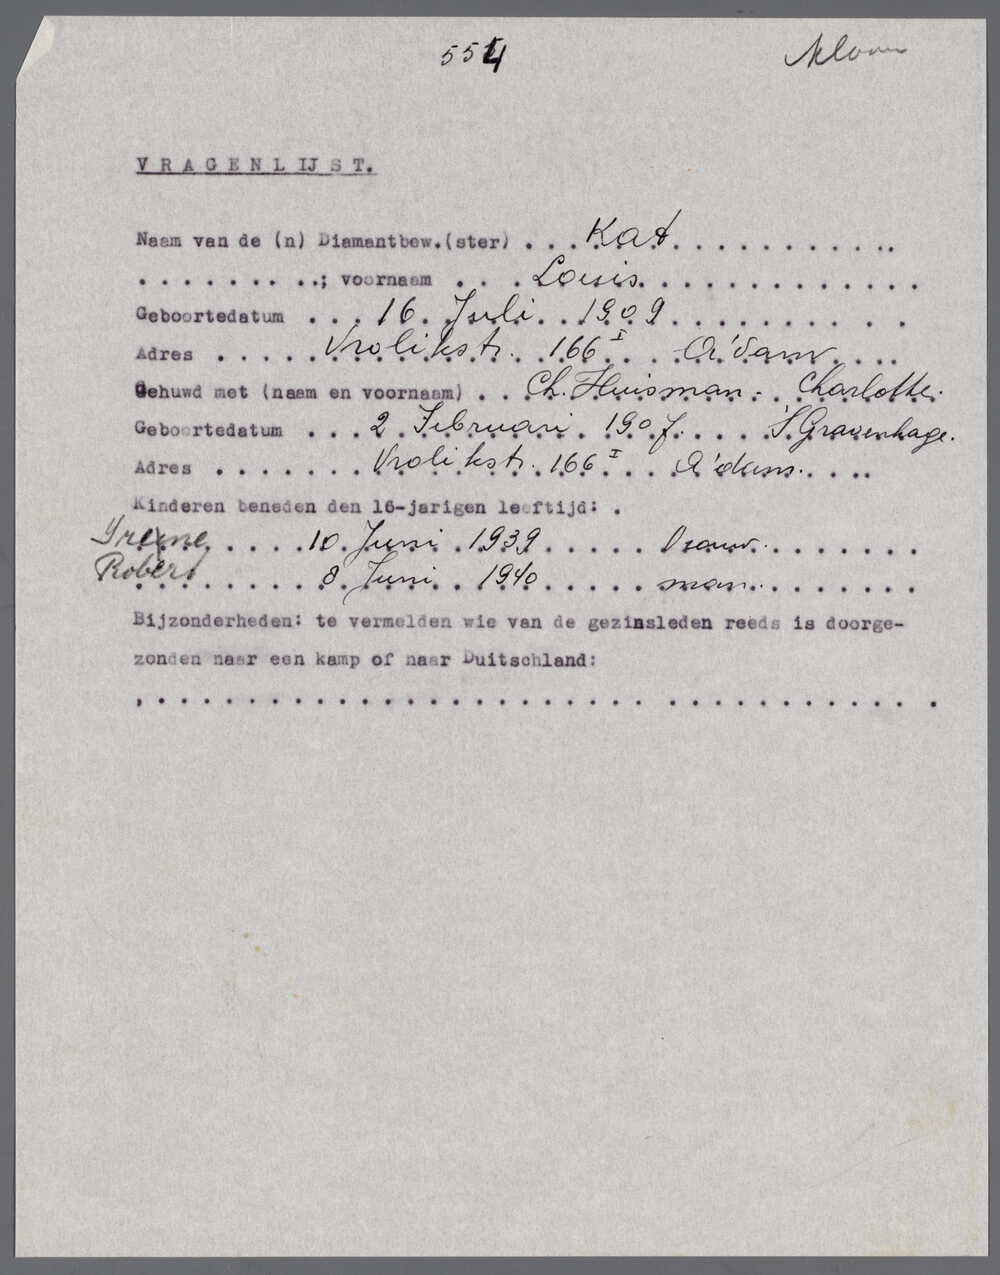 554
V R A G E N L IJ S T.
Naam van de (n) Diamantbew.(ster) . . . Kat . . . . . . . . . . .
. . . . . . . . .; voornaam . . . . Louis. . . . . . . . . . . . .
Geboortedatum . . . 16. Juli . 1909 . . . . . . . . . .
Adres . . . . . Vrolikstr. 166 I . . A'dam . . . .
Gehuwd met (naam en voornaam) . . Ch. Huisman - Charlotte.
Geboortedatum . . . 2 Februari 1907. . . . . 'S Gravenhage.
Adres . . . . . . . Vrolikstr. 166 I . . A'dam. . . . .
Kinderen beneden den 16-jarigen leeftijd: .
Irene . . . . . 10 Juni 1939 . . . . . Vrouw. . . . . . . .
Robert . . . . . . 8 Juni 1940 . . . . . man. . . . . . . . .
Bijzonderheden: te vermelden wie van de gezinsleden reeds is doorge-
zonden naar een kamp of naar Duitschland:
, . . . . . . . . . . . . . . . . . . . . . . . . . . . . . . . . . . . .